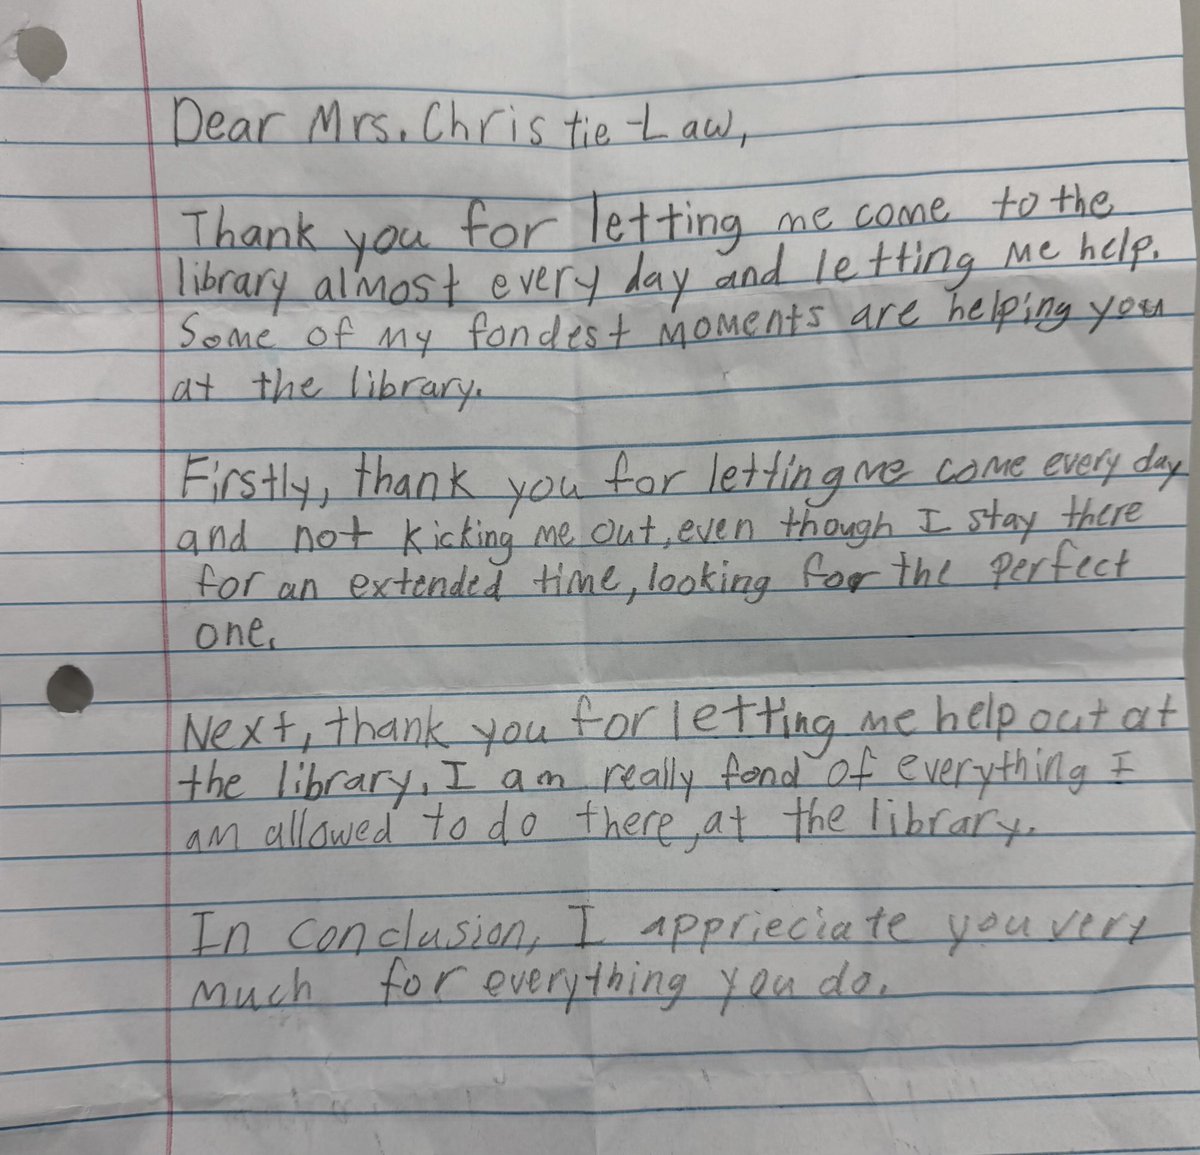 Dear Mrs. Christie-Law,
Thank you for letting me come to the
library almost every day and letting me help.
Some of my fondest moments are helping you
at the library.
Firstly, thank you for letting me come every day
and not kicking me out, even though I stay there
for an extended time, looking for the perfect
one.
Next, thank you for letting me help out at
the library. I am really fond of everything I
am allowed to do there, at the library.
In conclusion, I apprieciate you very
much for everything you do.